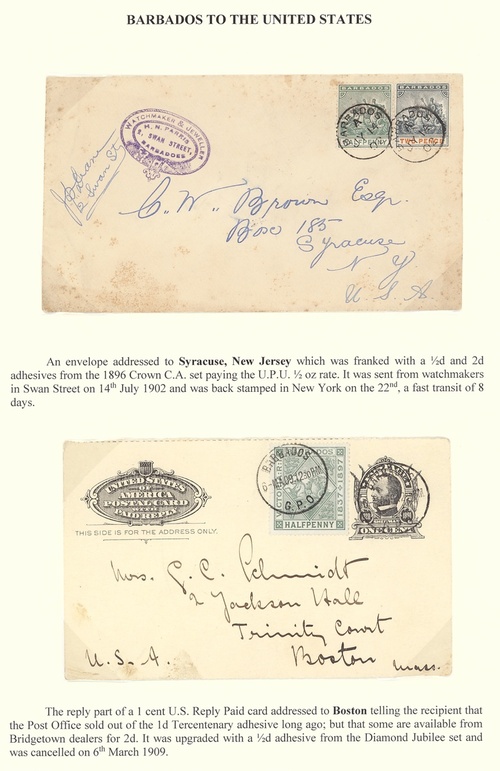 BARBADOS TO THE UNITED STATES
WATCHMAKER & JEWELLER
H. N. PARRIS
SWAN STREET,
BARBADOES
Swan St
BARBADOS
BARBADOS
HALFPENNY
TWO PENCE
C. W. Brown Esqr.
Box 185
Syracuse
N Y
U. S. A.
An envelope addressed to Syracuse, New Jersey which was franked with a ½d and 2d
adhesives from the 1896 Crown C.A. set paying the U.P.U. ½ oz rate. It was sent from watchmakers
in Swan Street on 14th July 1902 and was back stamped in New York on the 22nd, a fast transit of 8
days.
UNITED STATES
OF
AMERICA
POSTAL CARD
WITH
PAID REPLY
THIS SIDE IS FOR THE ADDRESS ONLY.
BARBADOS
G.P.O.
1837-1897
HALFPENNY
ONE CENT
Mrs. G. C. Schmidt
2 Jackson Hall
Trinity Court
Boston Mass.
U. S. A.
The reply part of a 1 cent U.S. Reply Paid card addressed to Boston telling the recipient that
the Post Office sold out of the 1d Tercentenary adhesive long ago; but that some are available from
Bridgetown dealers for 2d. It was upgraded with a ½d adhesive from the Diamond Jubilee set and
was cancelled on 6th March 1909.